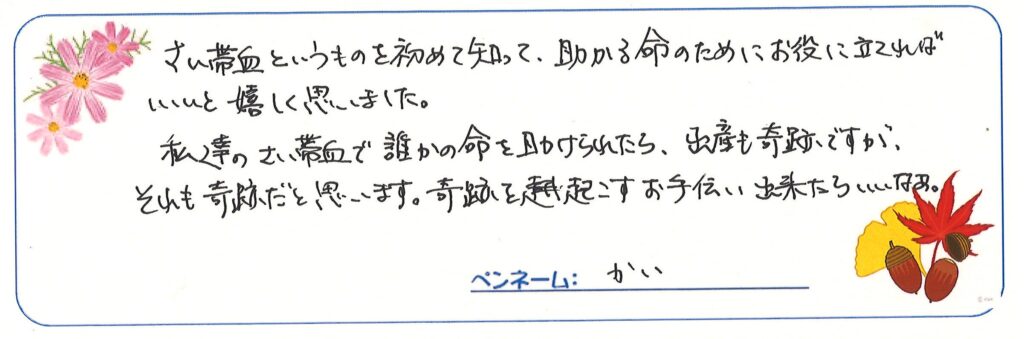 さい帯血というものを初めて知って、助かる命のためにお役に立てれば
いいと嬉しく思いました。
私達のさい帯血で誰かの命を助けられたら、出産も奇跡ですが、
それも奇跡だと思います。奇跡を起こすお手伝い出来たらいいなぁ。
ペンネーム: かい